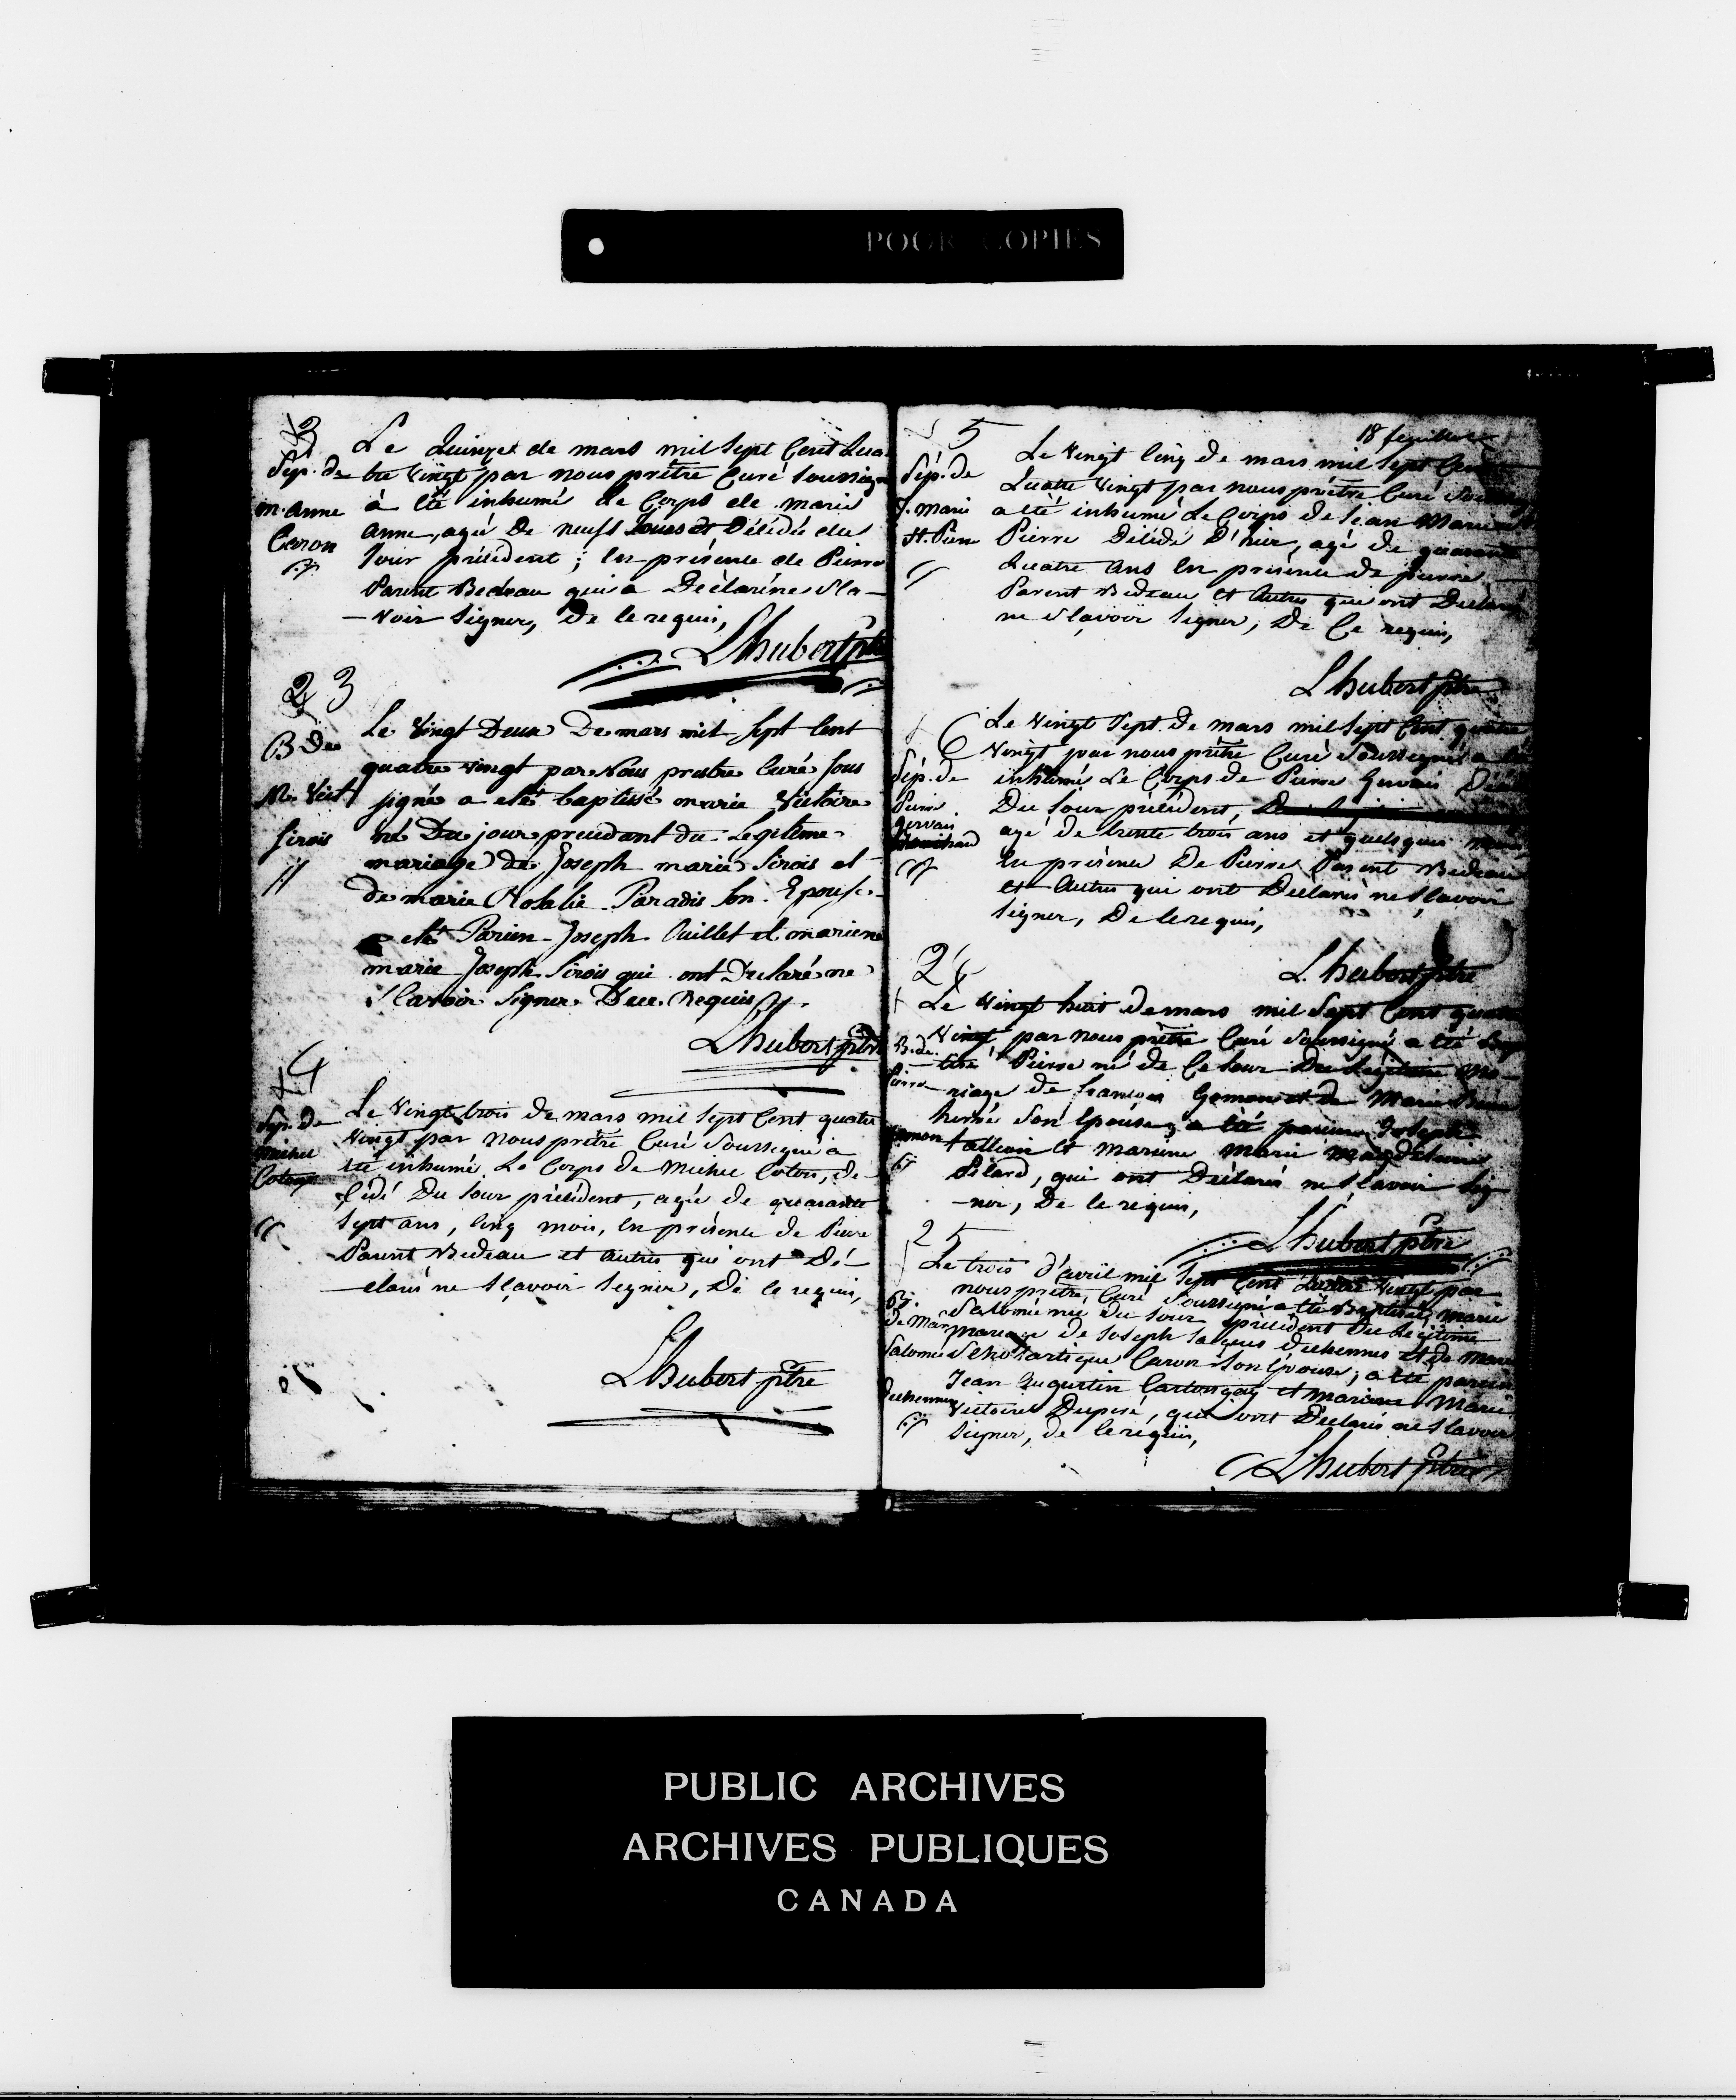 POOR COPIES
3
Le Quinze de mars mil Sept Cent Qua
Sep. de
m. anne
Caron
tre Vingt par nous prêtre Curé Soussigné
à été inhumé le Corps de marie
anne, agé de neuf Jours et Décédé du
Jour précédent ; en présence de Pierre
Parent Bedeau qui a Déclaré ne Sça-
-voir Signer, De ce requis,
Lhubert ptre
23
B de
M. Vict
Sirois
Le Vingt Deux De mars mil Sept Cent
quatre vingt par Nous prestre Curé sous
signé a eté baptissé marie Victoire
né Du jour precedant du Legitime
mariage de Joseph marie Sirois et
de marie Rosalie Paradis son Epouse
a eté Parien Joseph Ouillet et mariene
marie Joseph Sirois qui ont Declaré ne
Scavoir Signer Dece Requis
Lhubert ptre
4
Sep. De
michel
Coton
Le Vingt trois de mars mil Sept Cent quatre
Vingt par nous prêtre Curé Soussigné a
été inhumé Le Corps de Michel Coton, dé-
cédé Du Jour précédent, agé de quarante
Sept ans, Cinq mois, en présence de Pierre
Parent Bedeau et autres qui ont Dé-
-claré ne Sçavoir Signer, De ce requis,
Lhubert ptre
18 feuillet
5
Sép. de
J. Marie
St. Pierre
Le Vingt Cinq de mars mil Sept Cent
Quatre Vingt par nous prêtre Curé
a été inhumé Le Corps de Jean Marie
Pierre Décédé D'hier, agé de quarante
Quatre ans En présence de pierre
Parent Bedeau et autres qui ont Declaré
ne Sçavoir Signer, De Ce requis,
Lhubert ptre
6
Sép. de
Pierre
Gervais
Le Vingt Sept De mars mil Sept Cent quatre
Vingt par nous prêtre Curé Soussigné a été
inhumé Le Corps de Pierre Gervais
Du Jour précédent,
agé de trente trois ans et quelques mois
En présence De Pierre Parent Bedeau
et Autres qui ont Declaré ne Sçavoir
Signer, De ce requis,
Lhubert ptre
24
Le Vingt huit de mars mil Sept Cent quatre
B. de
Pierre
Vingt par nous prêtre Curé Soussigné a été Bap
-tisé Pierre né de Ce Jour Du Légitime Ma-
-riage de François Gemon et de Marie
son Epouse, a été parein Joseph
et Mareine Marie Magdeleine
Pelard, qui ont Déclaré ne Sçavoir Sig
-ner, De ce requis,
Lhubert ptre
25
Le trois d'avril mil Sept Cent Quatre Vingt par
B.
de Marie
Salomée
Duchennes
nous prêtre Curé Soussigné a été Baptisée Marie
Salomée née Du Jour précédent Du Légitime
Mariage de Joseph Jacques duchennes et de Marie
Scholastique Caron Son Epouse, a été parein
Jean Augustin Castonguay et Mareine Marie
Victoire Duperé, qui ont Déclaré ne Sçavoir
Signer, de ce requis,
Lhubert ptre
PUBLIC ARCHIVES
ARCHIVES PUBLIQUES
CANADA